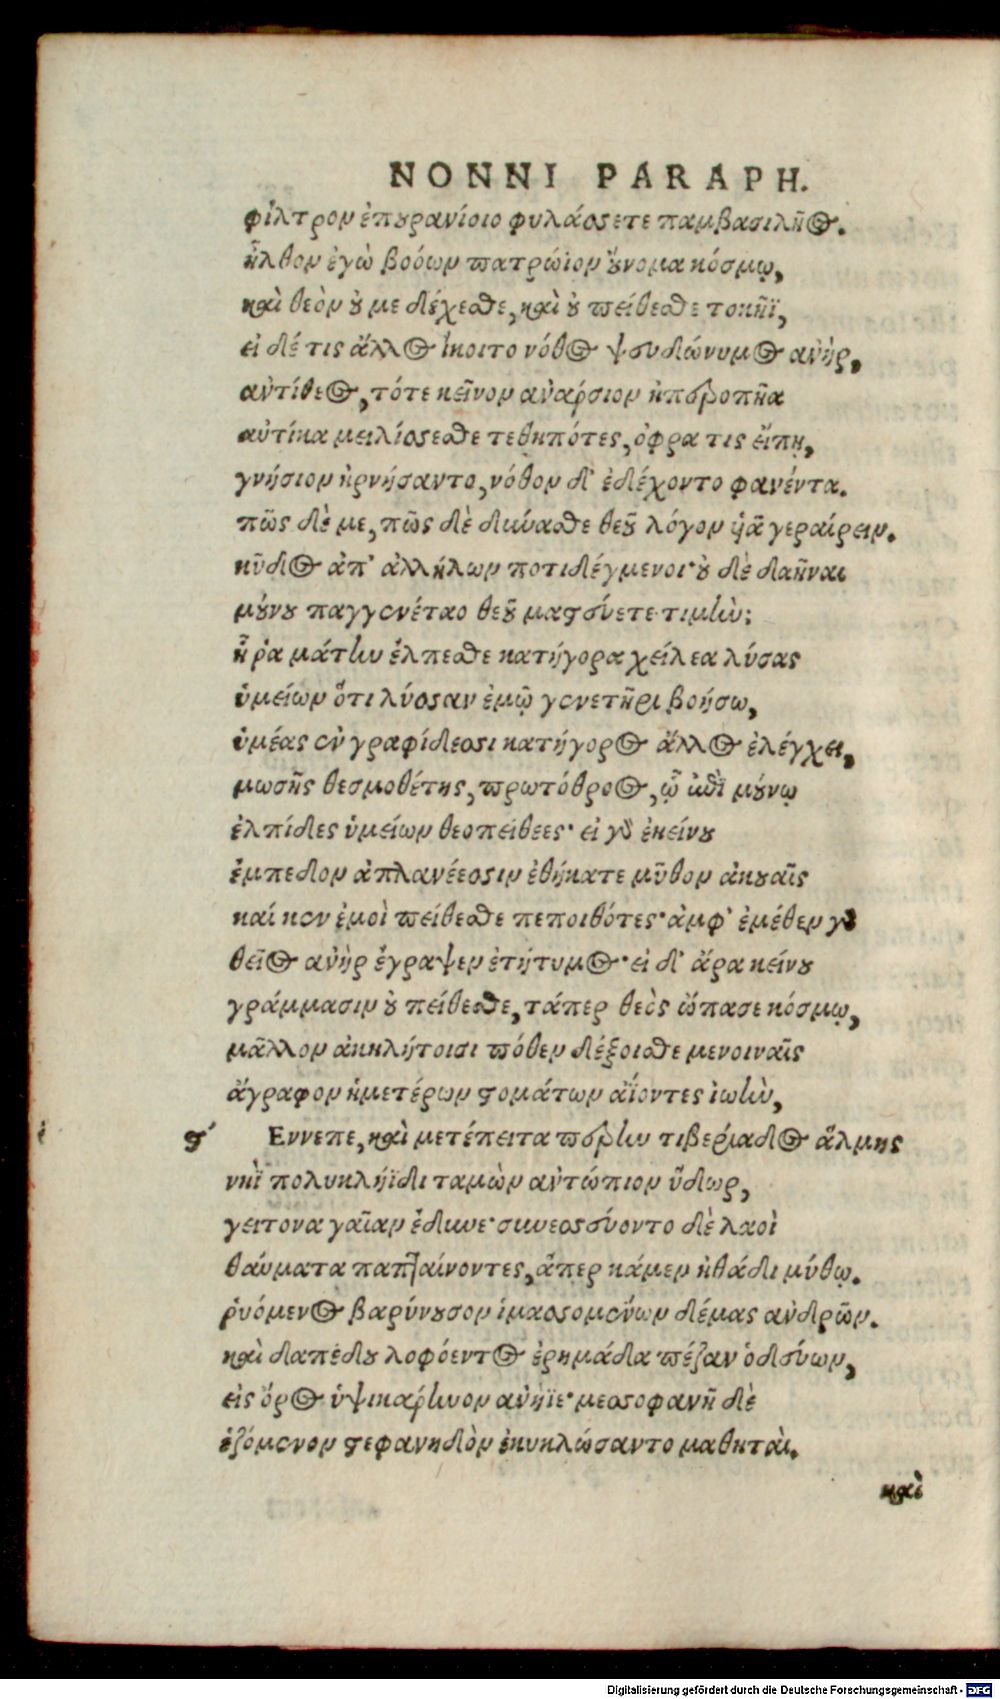 NONNI PARAPH.
φίλτρον ἐπουρανίοιο φυλάσσετε παμβασιλῆος.
ἦλθον ἐγὼ βοόων πατρώιον οὔνομα κόσμῳ,
καὶ θεὸν οὔ με δέχεσθε, καὶ οὐ πείθεσθε τοκῆϊ,
εἰ δέ τις ἄλλος ἵκοιτο νόθος ψευδώνυμος ἀνὴρ,
ἀντίθεος, τότε κεῖνον ἀνάρσιον ἠπεροπῆα
αὐτίκα μειλίσσεσθε τεθηπότες, ὄφρα τις εἴπῃ,
γνήσιον ἠρνήσαντο, νόθον δ' ἐδέχοντο φανέντα.
πῶς δὲ με, πῶς δὲ δύνασθε θεοῦ λόγον ὑῖα γεραίρειν.
κῦδος ἀπ' ἀλλήλων ποτιδέγμενοι· οὐ δὲ δαῆναι
μούνου παγγενέταο θεοῦ μαστεύετε τιμὴν;
ἦ ῥα μάτην ἔλπεσθε κατήγορα χείλεα λύσας
ὑμείων ὅτι λύσσαν ἐμῷ γενετῆρι βοήσω,
ὑμέας ἐν γραφίδεσσι κατήγορος ἄλλος ἐλέγχει,
μωσῆς θεσμοθέτης, πρωτόθρος, ᾧ ἐπὶ μούνῳ
ἐλπίδες ὑμείων θεοπειθέες· εἰ γὰρ ἐκείνου
ἔμπεδον ἀπλανέεσσιν ἐθήκατε μῦθον ἀκουαῖς
καί κεν ἐμοὶ πείθεσθε πεποιθότες· ἀμφ' ἐμέθεν γὰρ
θεῖος ἀνὴρ ἔγραψεν ἐτήτυμος· εἰ δ' ἄρα κείνου
γράμμασιν οὐ πείθεσθε, τάπερ θεὸς ὤπασε κόσμῳ,
μᾶλλον ἀκηλήτοισι πόθεν δέξοισθε μενοιναῖς
ἄγραφον ἡμετέρων στομάτων ἀΐοντες ἰωὴν,
ϛ' Εννεπε, καὶ μετέπειτα περὴν τιβεριάδος ἅλμης
νηῒ πολυκλήϊδι ταμὼν ἀντώπιον ὕδωρ,
γειτονα γαῖαν ἔδυνε· συνεσσεύοντο δὲ λαοὶ
θαύματα παπταίνοντες, ἅπερ κάμεν ἠθάδι μύθῳ.
ῥυόμενος βαρύνουσον ἱμασσομένων δέμας ἀνδρῶν.
καὶ δαπέδου λοφόεντος ἐρημάδα πέζαν ὁδεύων,
εἰς ὄρος ὑψικάρηνον ἀνήϊε· μεσσοφανῆ δὲ
ἑζόμενον στεφανηδὸν ἐκυκλώσαντο μαθηταὶ.
καὶ
Digitalisierung gefördert durch die Deutsche Forschungsgemeinschaft - DFG